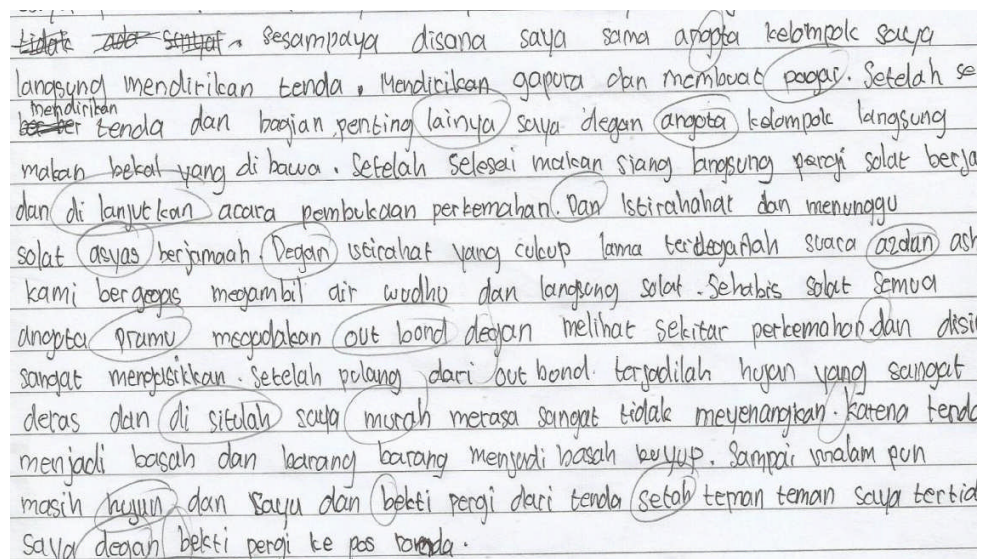 sesampaya disana saya sama angota kelompok saya
langsung mendirikan tenda, Mendirikan gapura dan membuat pagar. Setelah se
mendirikan
tenda dan bagian penting lainya saya degan angota kelompok langsung
makan bekal yang di bawa. Setelah selesai makan siang langsung pergi solat berja
dan di lanjutkan acara pembukaan perkemahan. Dan Istirahahat dan menunggu
solat asyas berjamaah. Degan istirahat yang cukup lama terdegarlah suara azdan ash
kami bergegas megambil air wudhu dan langsung solat. Sehabis solat semua
angota pramu megadakan out bond degan melihat sekitar perkemahan dan disi
sangat mengasikkan. Setelah pulang dari out bond. terjadilah hujan yang sangat
deras dan di situlah saya murah merasa sangat tidak meyenangkan. Karena tenda
menjadi basah dan barang barang menjadi basah kuyup. Sampai malam pun
masih hujun dan saya dan bekti pergi dari tenda setah teman teman saya tertid
saya degan bekti pergi ke pos ronda.